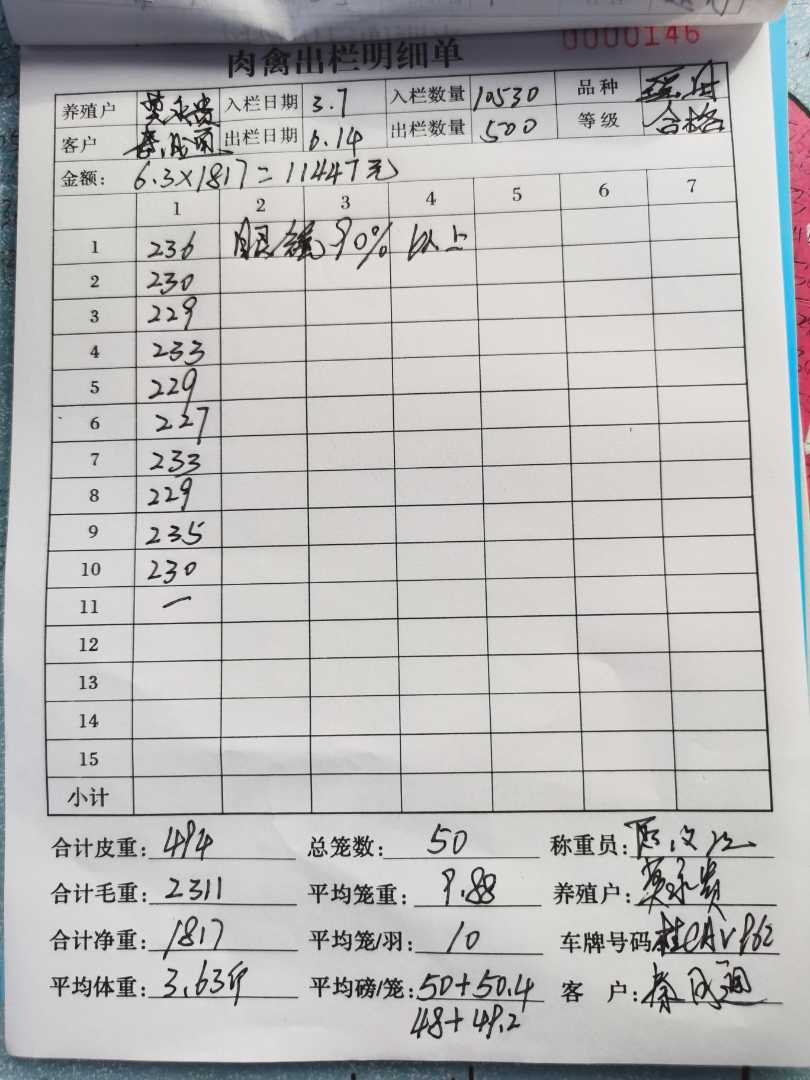 0000146
肉禽出栏明细单
养殖户 黄永贵 入栏日期 3.7 入栏数量 10530 品种
客户 出栏日期 6.14 出栏数量 500 等级 合格
金额: 6.3×1817=11447元
1 2 3 4 5 6 7
1 236 90%以上
2 230
3 229
4 233
5 229
6 227
7 233
8 229
9 235
10 230
11 一
12
13
14
15
小计
合计皮重: 494 总笼数: 50 称重员:
合计毛重: 2311 平均笼重: 9.88 养殖户: 黄永贵
合计净重: 1817 平均笼/羽: 10 车牌号码
平均体重: 3.63斤 平均磅/笼: 50+50.4 客 户:
48+49.2